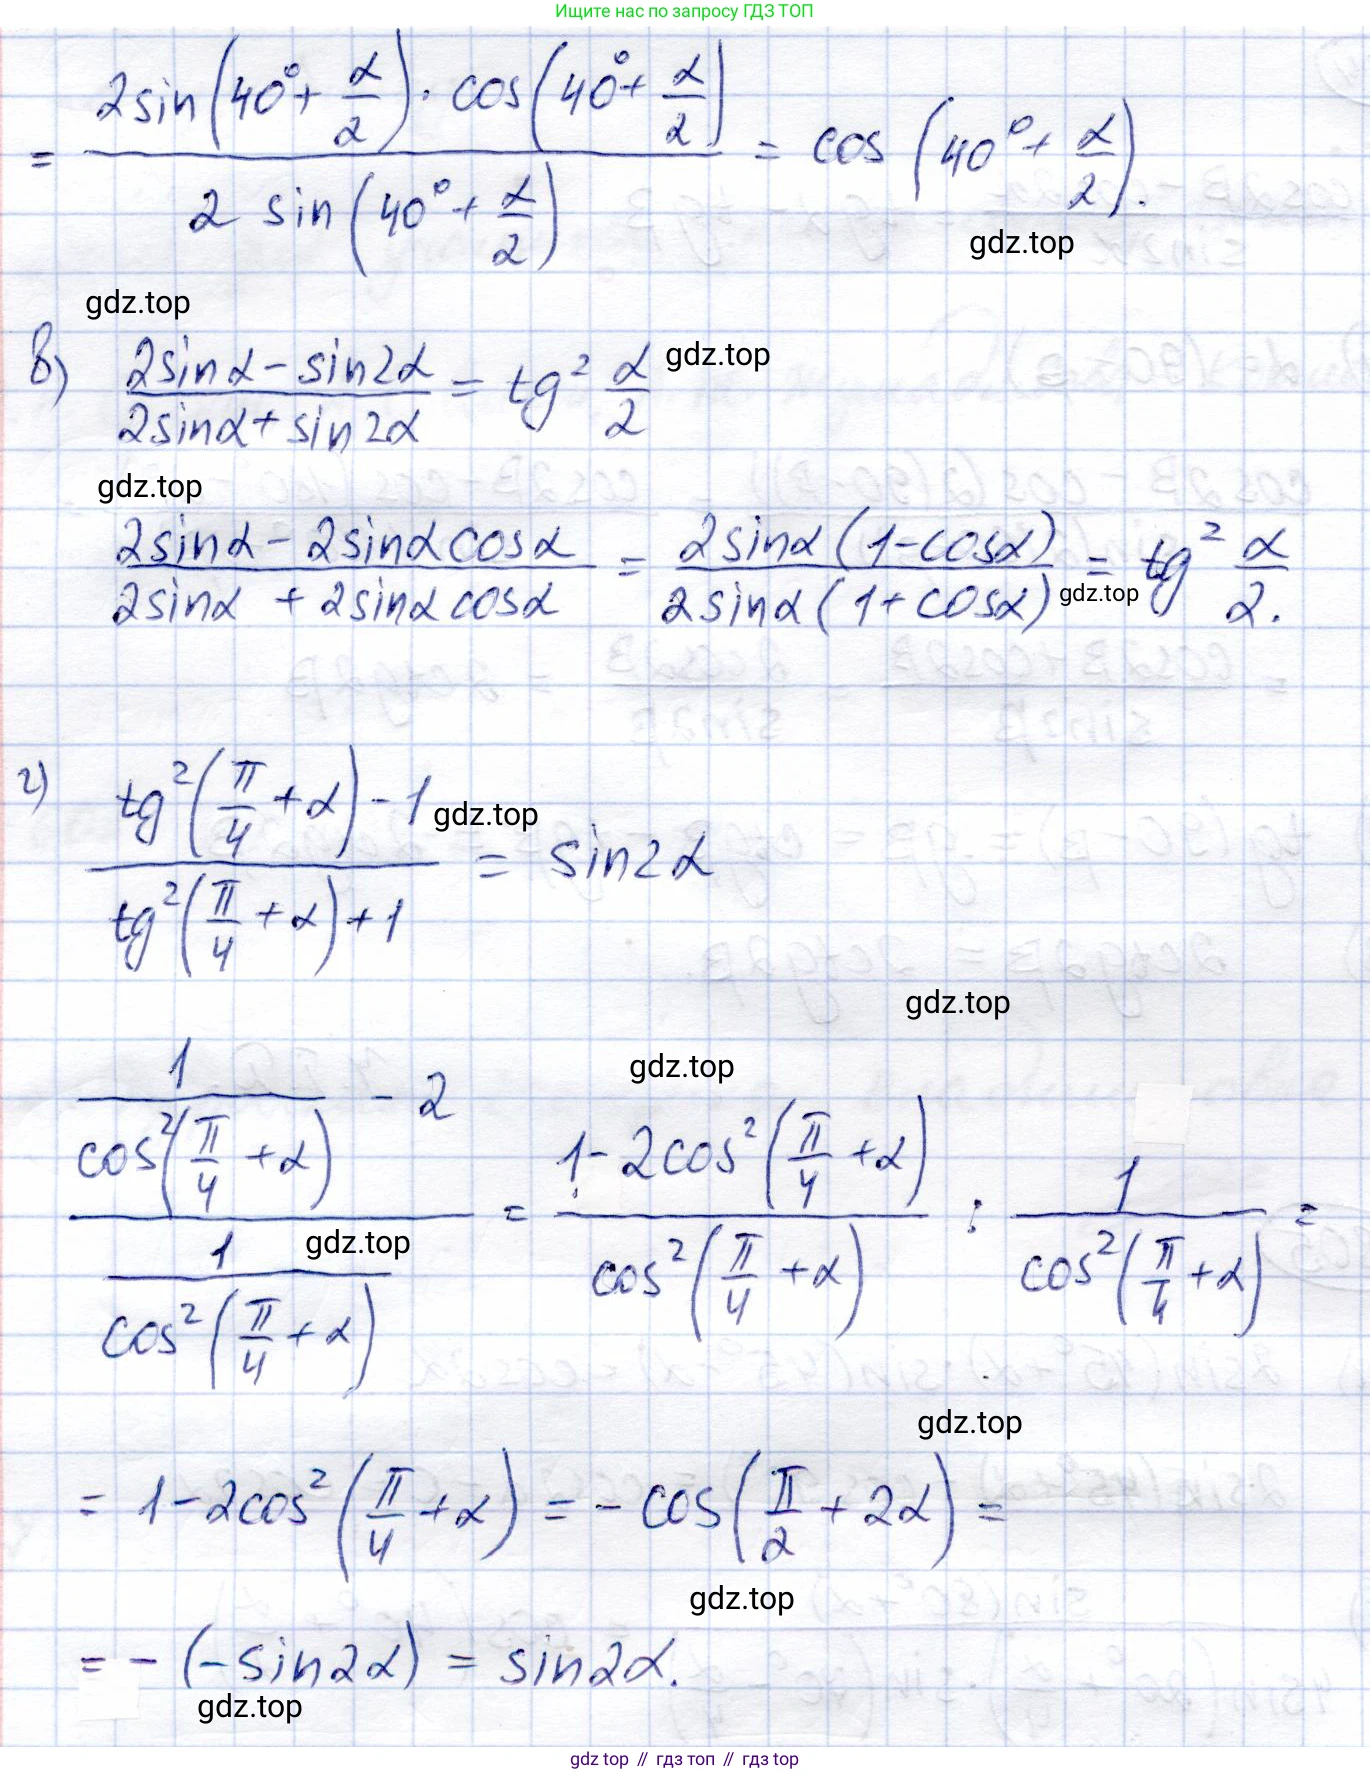 Ищите нас по запросу ГДЗ ТОП
= (2sin(40° + α/2) · cos(40° + α/2)) / (2 sin(40° + α/2)) = cos(40° + α/2).
gdz.top
gdz.top
в) (2sinα - sin2α) / (2sinα + sin2α) = tg² α/2
gdz.top
gdz.top
(2sinα - 2sinα cosα) / (2sinα + 2sinα cosα) = (2sinα(1-cosα)) / (2sinα(1+cosα)) = tg² α/2.
gdz.top
г) (tg²(π/4 + α) - 1) / (tg²(π/4 + α) + 1) = sin2α
gdz.top
gdz.top
gdz.top
(1/cos²(π/4 + α) - 2) / (1/cos²(π/4 + α)) = (1 - 2cos²(π/4 + α)) / cos²(π/4 + α) : 1/cos²(π/4 + α) =
gdz.top
gdz.top
= 1 - 2cos²(π/4 + α) = -cos(π/2 + 2α) =
gdz.top
= -(-sin2α) = sin2α.
gdz.top
gdz top // гдз топ // гдз top